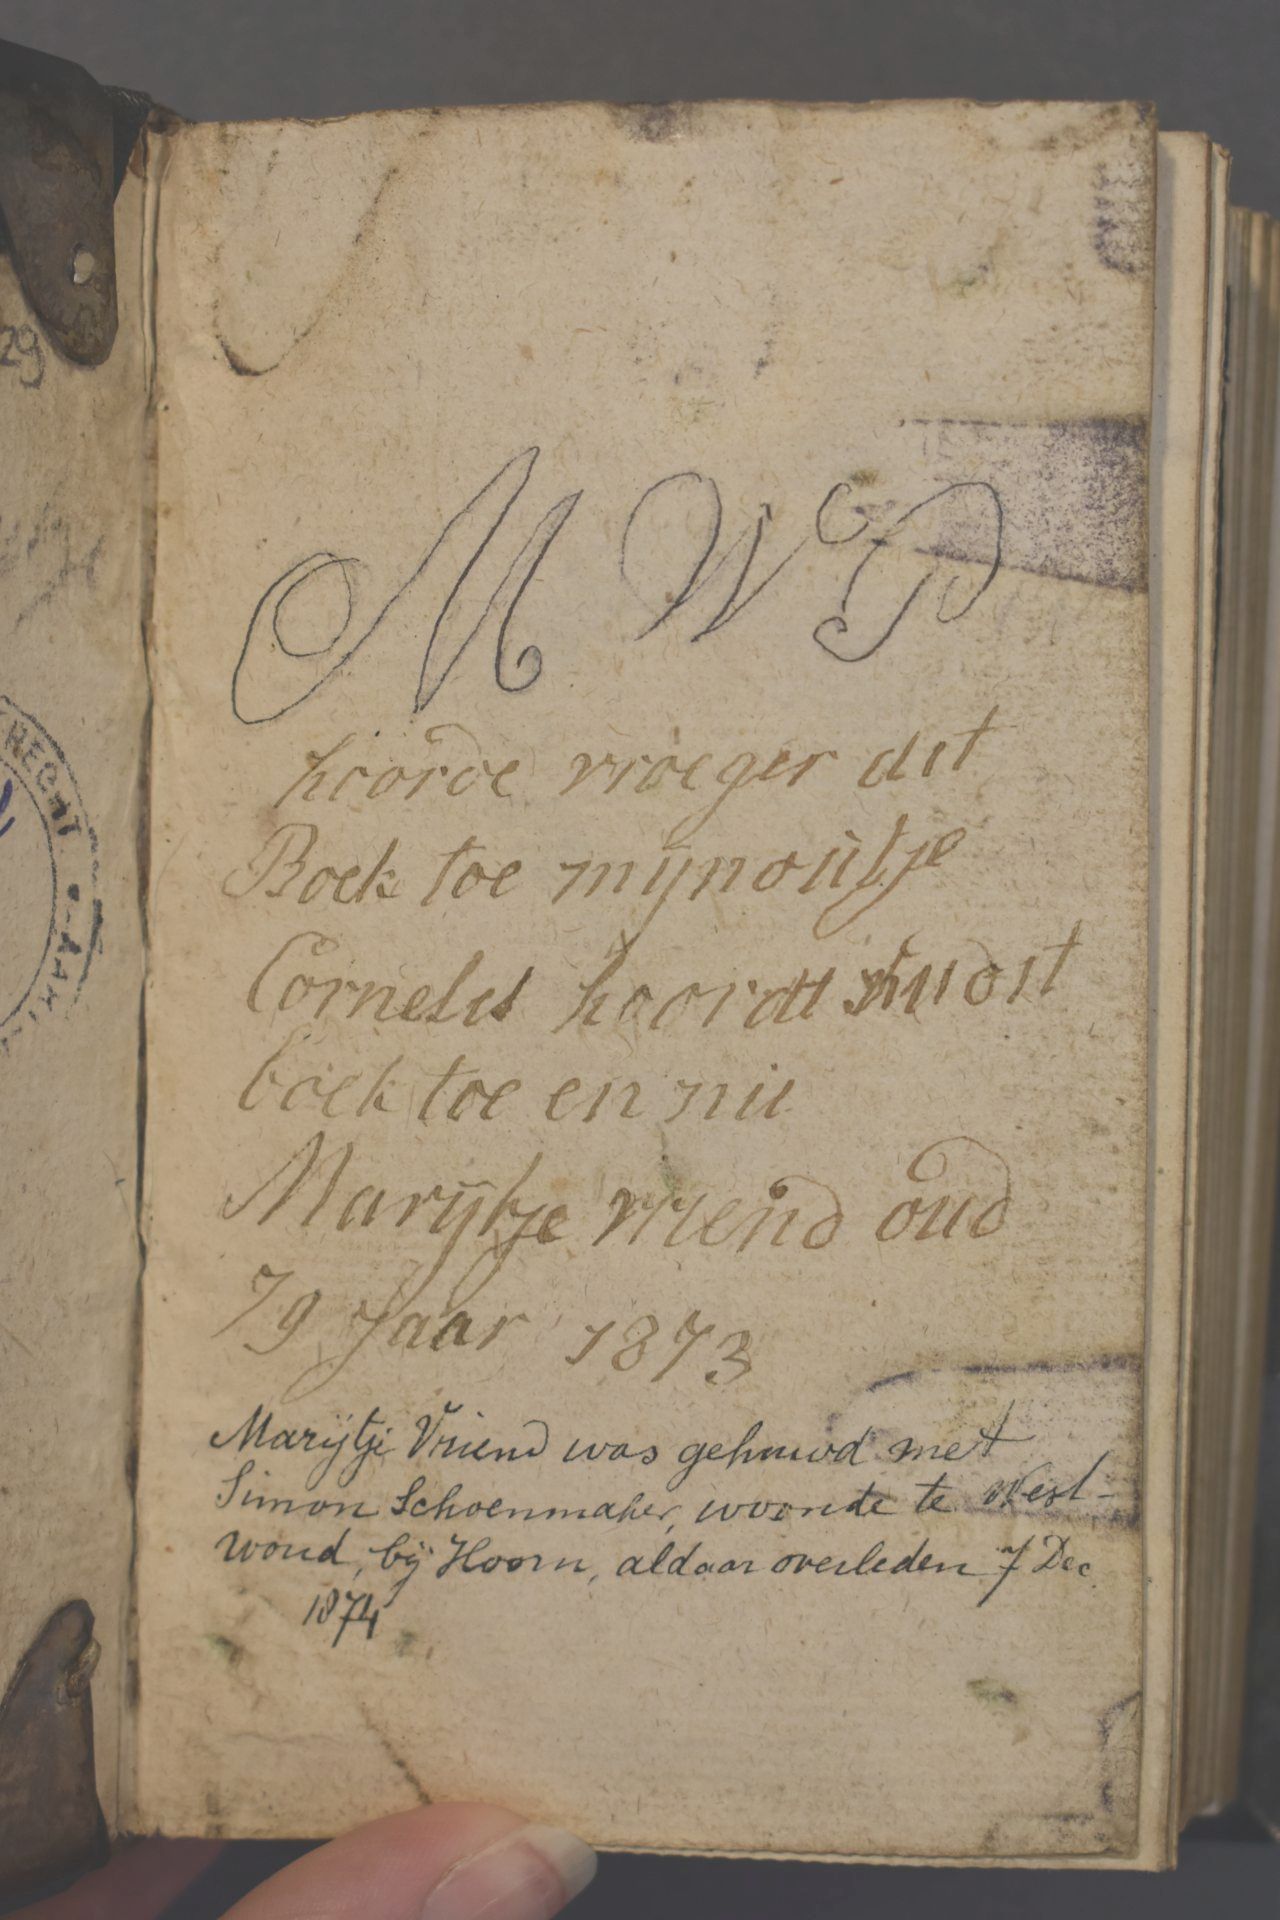 29
RECHT
M W D
hoorde vroeger dit
Boek toe mijn outje
Cornelis hoordt nu dit
boek toe en nu
Marijtje vriend oud
79 Jaar 1873
Marijtje Vriend was gehuwd met
Simon Schoenmaker, woonde te West-
woud, bij Hoorn, aldaar overleden 7 Dec
1874